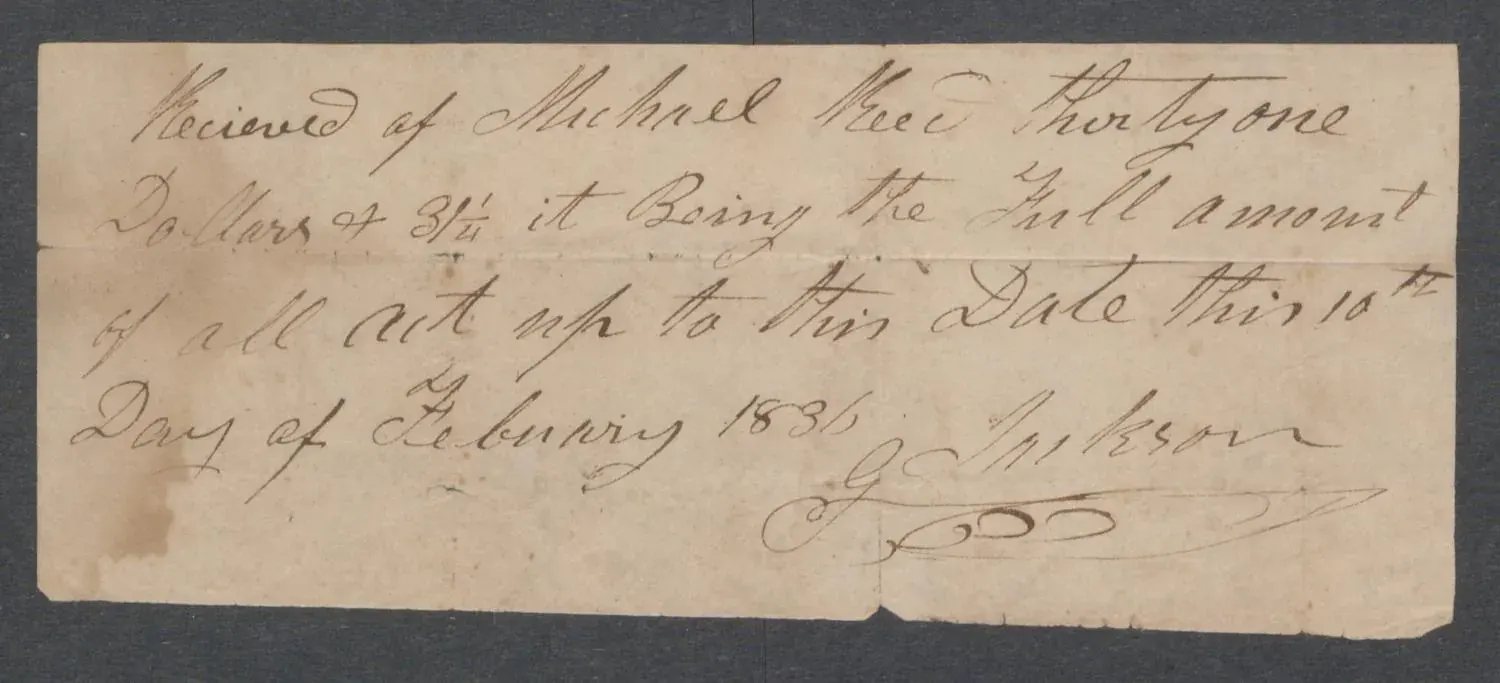 Recieved of Michael Reed Thirty one
Dollars & 31¼ it Being the Full amount
of all act up to this Date this 10th
Day of Febuary 1836
G Jackson